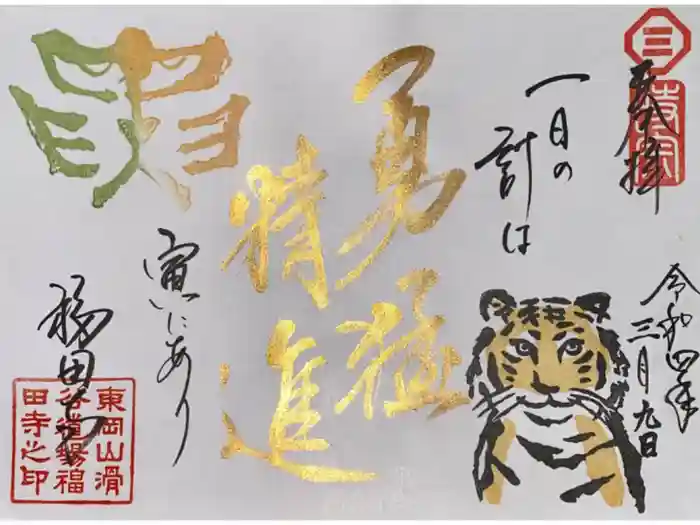 奉拝
令和四年
三月九日
一日の
計は
勇猛
特進
寅にあり
福田寺
東岡山滑
谷道場福
田寺之印
三